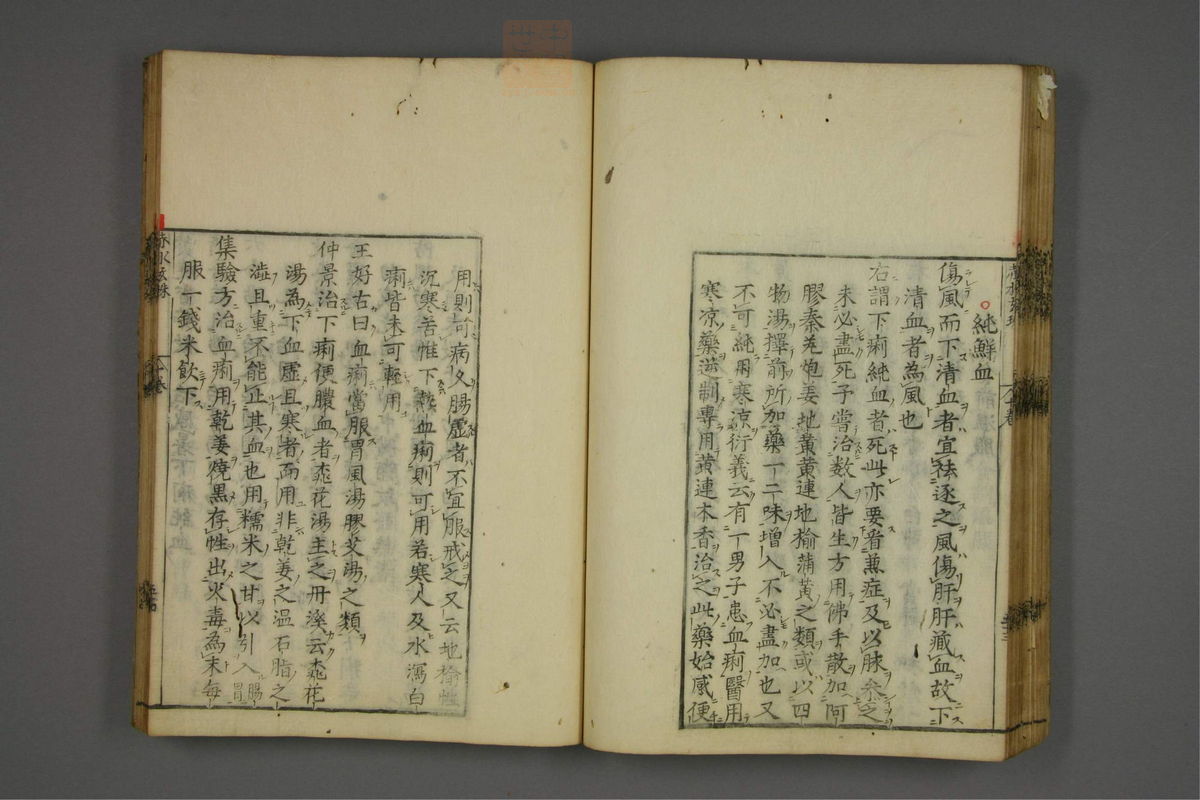 純鮮血
傷風而下清血者宜祛逐之風傷肝肝藏血故下
清血者為風也
右謂下痢純血者死此亦要看兼症及以脉参之
未必盡死予嘗治数人皆生方用佛手散加阿
膠秦艽炮姜地黄黄連地榆蒲黄之類或以四
物湯擇前所加藥一二味增入不必盡加也又
不可純用寒凉衍義云有一男子患血痢醫用
寒凉藥逆制專用黄連木香治之此藥始感便
用則可病久腸虛者不宜服戒之又云地榆性
沉寒苦惟下熱血痢則可用若寒人及水瀉白
痢皆未可輕用
王好古曰血痢當服胃風湯膠艾湯之類
仲景治下痢便膿血者桃花湯主之丹溪云桃花
湯為下血虛且寒者而用非乾姜之温石脂之
澁且重不能止其血也用糯米之甘以引入腸胃
集驗方治血痢用乾姜燒黑存性出火毒為末每
服一錢米飲下